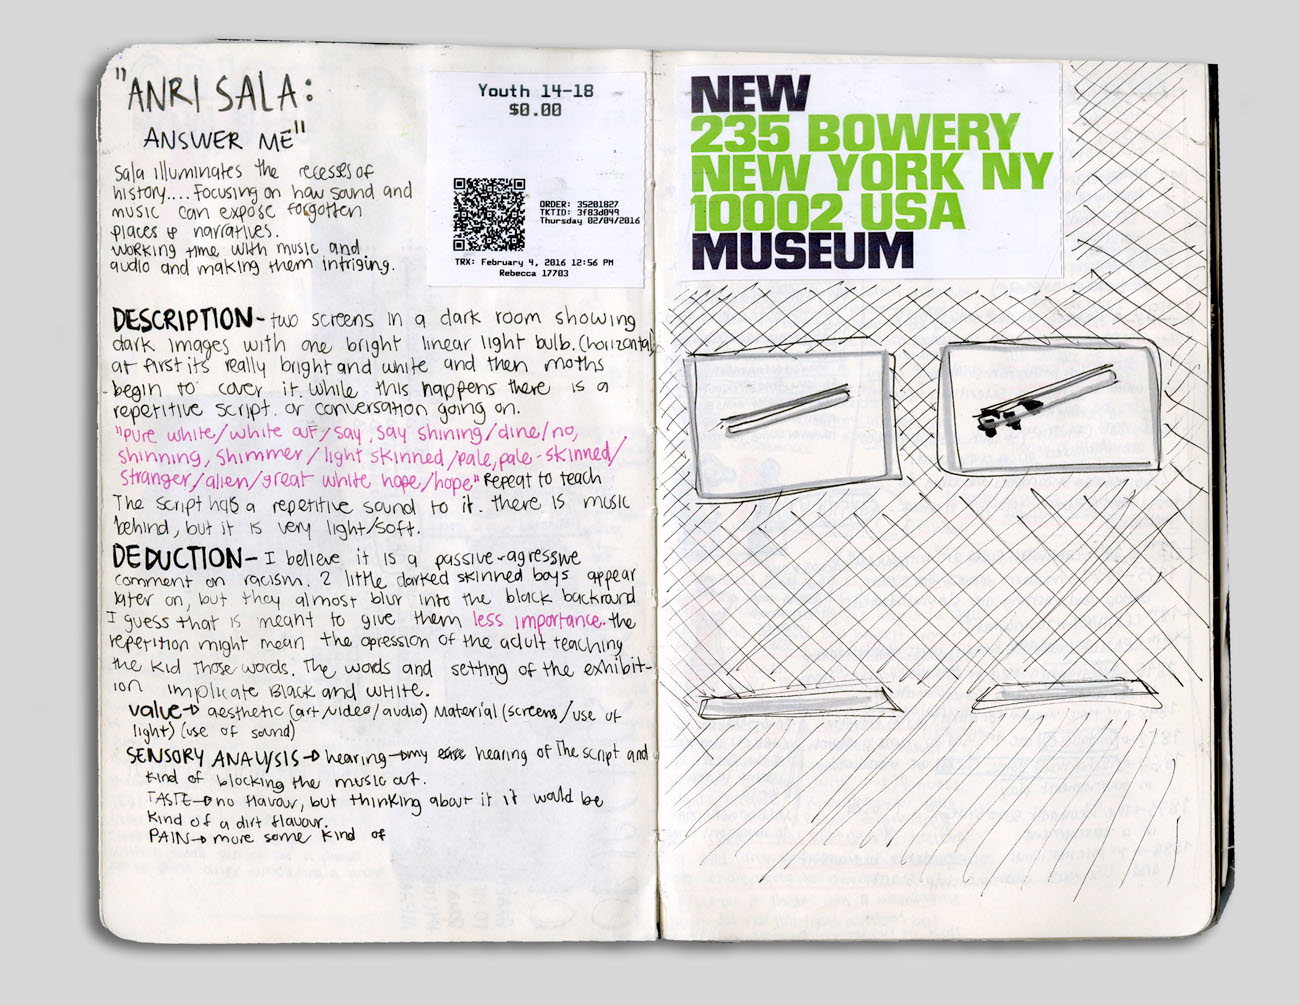 "ANRI SALA:
ANSWER ME"
Sala illuminates the recesses of
history.... Focusing on how sound and
music can expose forgotten
places & narratives.
working time with music and
audio and making them intriging.
Youth 14-18
$0.00
ORDER: 35201827
TKTID: 3f83d049
Thursday 02/04/2016
TRX: February 4, 2016 12:56 PM
Rebecca 17703
DESCRIPTION- two screens in a dark room showing
dark images with one bright linear light bulb. (horizontal)
at first it's really bright and white and then moths
begin to cover it. While this happens there is a
repetitive script. or conversation going on.
"Pure white/white out/say, say shining/dine/no,
shinning, shimmer/light skinned/pale, pale-skinned/
stranger/alien/great white hope/hope" Repeat to teach
The script has a repetitive sound to it. there is music
behind, but it is very light/soft.
DEDUCTION- I believe it is a passive-agressive
comment on racism. 2 little darked skinned boys appear
later on, but they almost blur into the black backround
I guess that is meant to give them less importance. the
repetition might mean the opression of the adult teaching
the kid those words. The words and setting of the exhibit-
ion implicate Black and white.
value→ aesthetic (art/video/audio) Material (screens/use of
light) (use of sound)
SENSORY ANALYSIS→ hearing→my hearing of The script and
kind of blocking the music out.
TASTE→no flavour, but thinking about it it would be
kind of a dirt flavour.
PAIN→ more some kind of
NEW
235 BOWERY
NEW YORK NY
10002 USA
MUSEUM